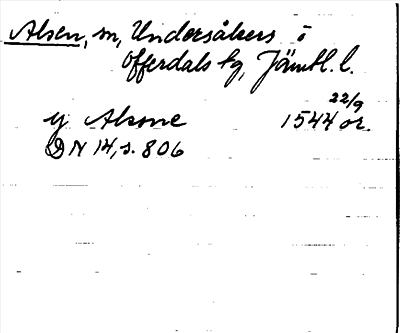 Alsen, sn, Undersåkers i
Offerdals tg, Jämtl. l.
22/9
y Alsone 1544 or.
DN 14, s. 806